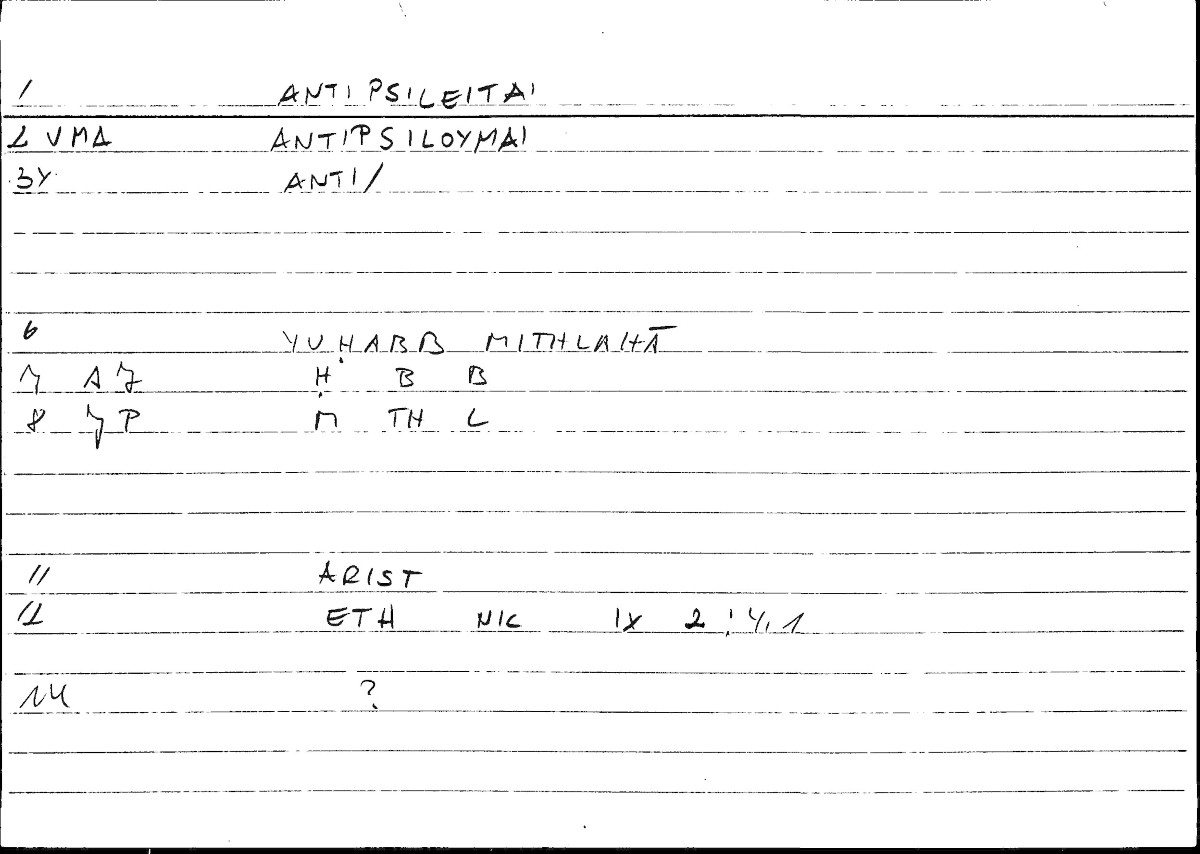 1 ANTIPSILEITAI
2 VMA ANTIPSILOYMAI
3Y ANTI/
6 YUḤABB MITHLAHĀ
7 Ḥ B B
8 M TH L
11 ARIST
12 ETH NIC IX 2
14 ?